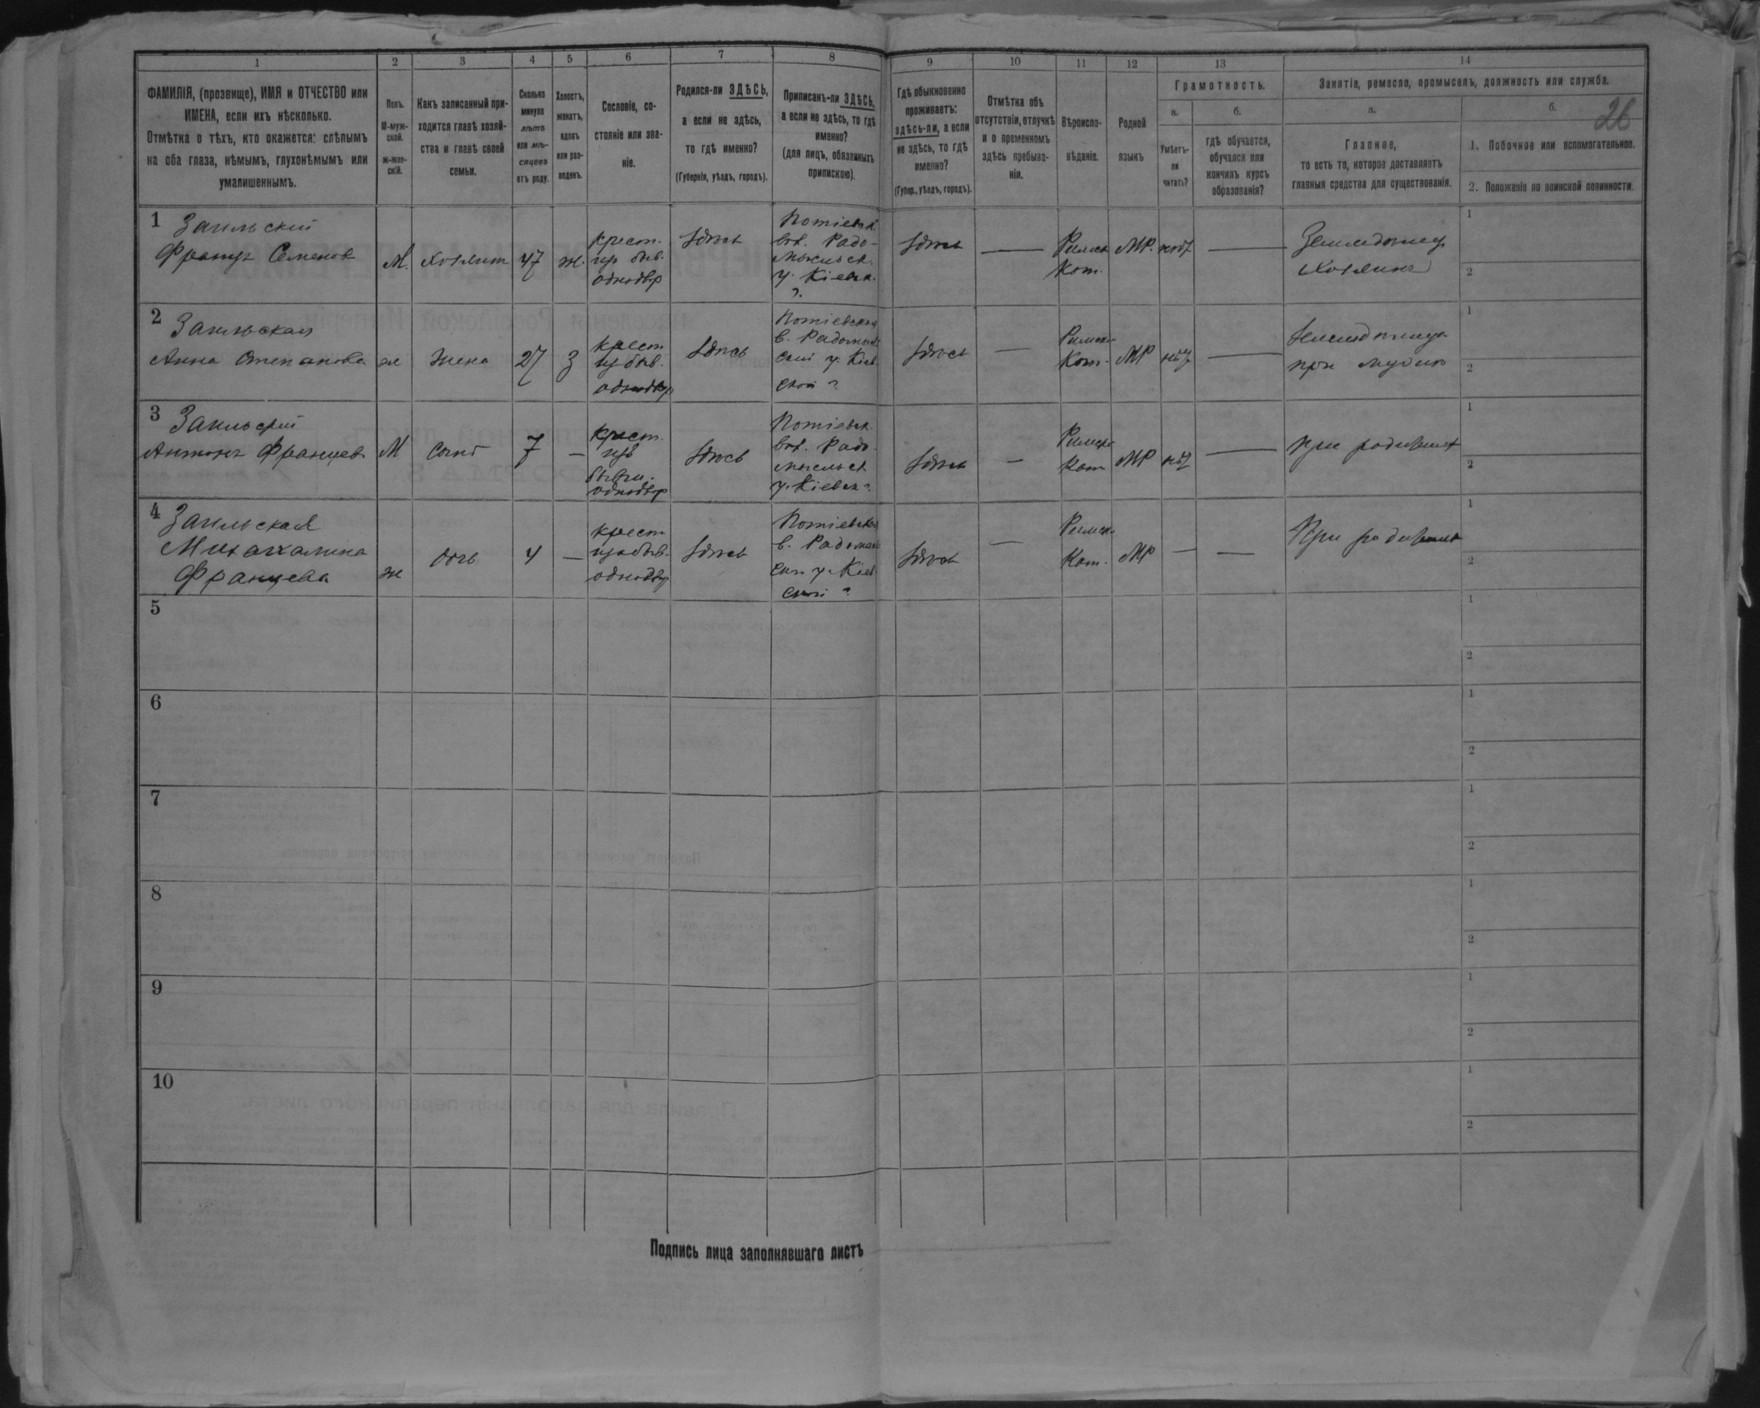 1
2
3
4
5
6
7
8
9
10
11
12
13
14
ФАМИЛІЯ, (прозвище), ИМЯ и ОТЧЕСТВО или
ИМЕНА, если ихъ нѣсколько.
Отмѣтка о тѣхъ, кто окажется: слѣпымъ
на оба глаза, нѣмымъ, глухонѣмымъ или
умалишеннымъ.
Полъ.
М-муж-
ской.
ж-жен-
скій.
Какъ записанный при-
ходится главѣ хозяй-
ства и главѣ своей
семьи.
Сколько
минуло
лѣтъ
или мѣ-
сяцевъ
отъ роду.
Холостъ,
женатъ,
вдовъ
или раз-
веденъ.
Сословіе, со-
стояніе или зва-
ніе.
Родился-ли ЗДѢСЬ,
а если не здѣсь,
то гдѣ именно?
(Губернія, уѣздъ, городъ).
Приписанъ-ли ЗДѢСЬ,
а если не здѣсь, то гдѣ
именно?
(для лицъ, обязанныхъ
припискою).
Гдѣ обыкновенно
проживаетъ:
здѣсь-ли, а если
не здѣсь, то гдѣ
именно?
(Губер., уѣздъ, городъ).
Отмѣтка объ
отсутствіи, отлучкѣ
и о временномъ
здѣсь пребыва-
ніи.
Вѣроиспо-
вѣданіе.
Родной
языкъ
Грамотность.
а.
Умѣетъ-
ли
читать?
б.
гдѣ обучается,
обучался или
кончилъ курсъ
образованія?
Занятія, ремесло, промыселъ, должность или служба.
а.
Главное,
то есть то, которое доставляетъ
главныя средства для существованія.
б.
26
1. Побочное или вспомогательное.
2. Положеніе по воинской повинности.
1
Заильский
Францъ Семеновъ
М.
хозяинъ
47
ж.
крест.
изъ быв.
однодвр
здѣсь
Потіевск
вол. Радо-
мысльск.
у. Кіевск.
г.
здѣсь
—
Римск
Кат.
МР.
нѣтъ
—
Земледѣлец
хозяинъ
1
2
2
Заильская
Анна Степанова
ж
Жена
27
з
крест
изъ быв.
однодвр
здѣсь
Потіевской
в. Радомысл
ской у. Кіев
ской г
здѣсь
—
Римск
Кат.
МР
нѣт
—
Земледѣлица
при мужѣ
1
2
3
Заильский
Антонъ Францевъ
М
сынъ
7
—
крест.
изъ
бывш.
однодвр
здѣсь
Потіевск
вол. Радо-
мысльск
у. Кіевск г
здѣсь
—
Римск
Кат
МР
нѣт
—
при родителях
1
2
4
Заильская
Михалина
Францева
ж
дочь
4
—
крест
изъ быв.
однодвр
здѣсь
Потіевской
в. Радомысл
ск. у. Кіев
ской г
здѣсь
—
Римск
Кат.
МР
—
—
При родителях
1
2
5
1
2
6
1
2
7
1
2
8
1
2
9
1
2
10
1
2
Подпись лица заполнявшаго листъ